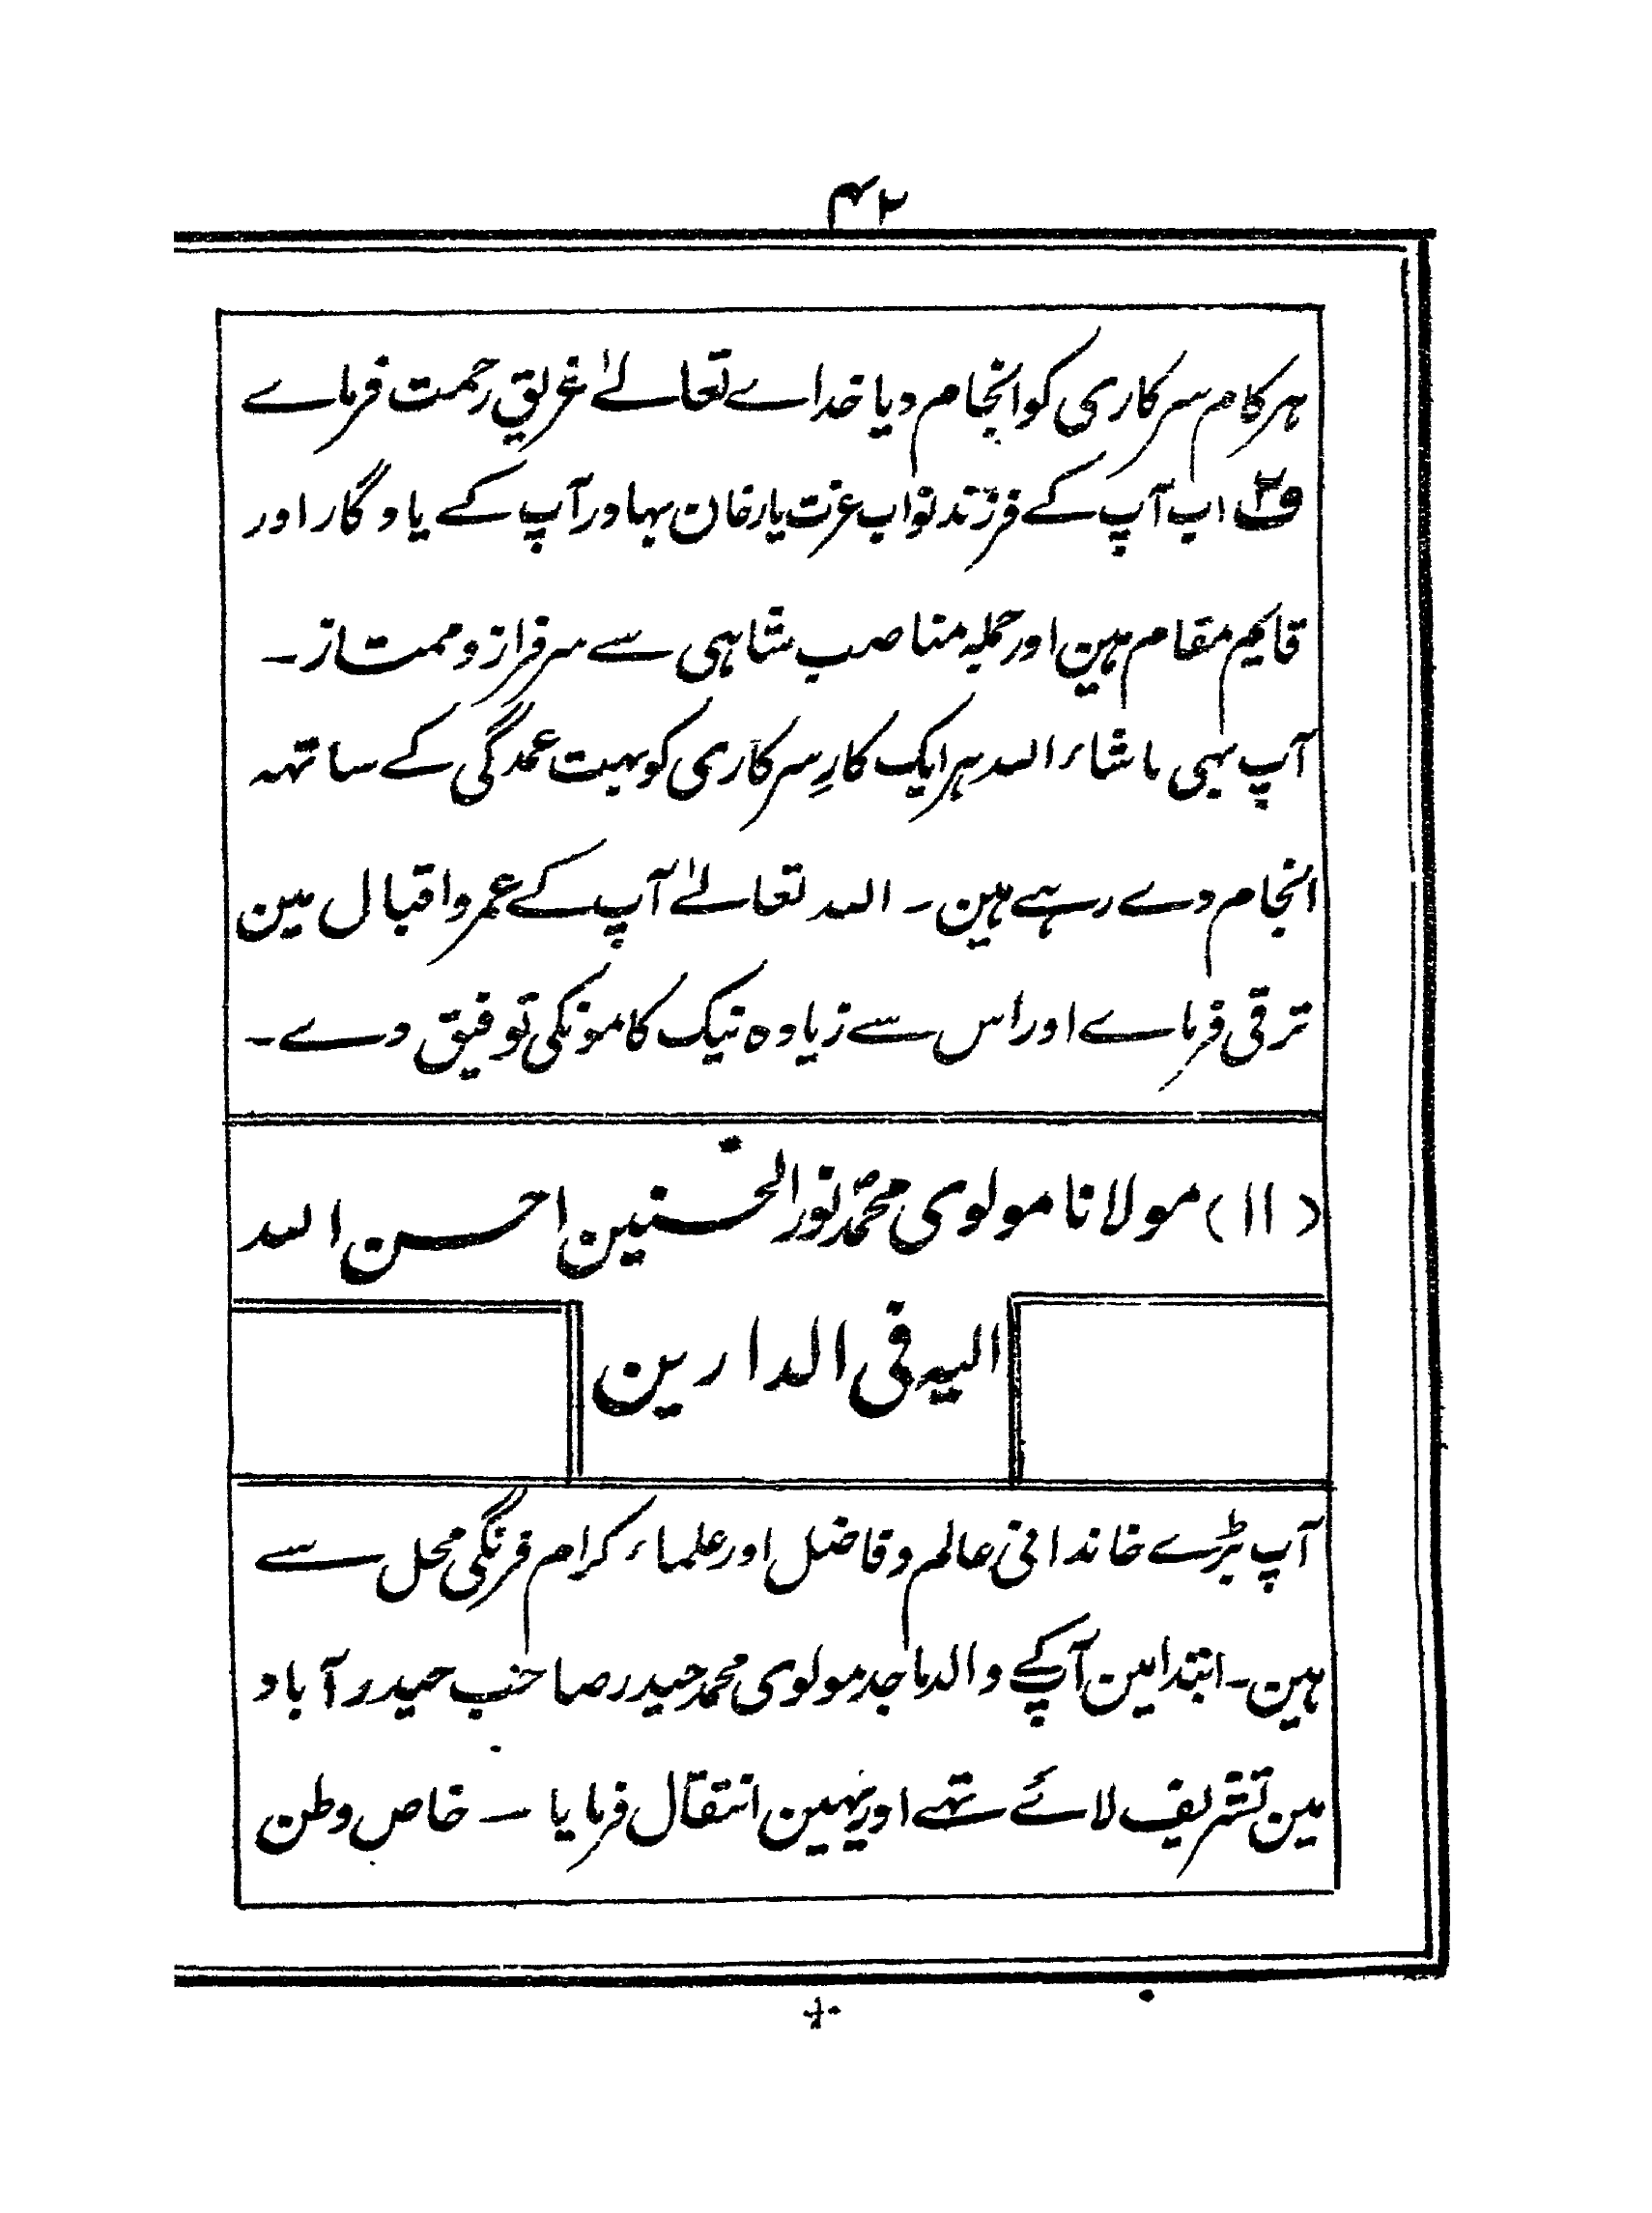 ۴۲
ہرکام سرکاری کو انجام دیا خداے تعالےٰ غریق رحمت فرماے
ف۲ اب آپ کے فرزند نواب عزت یار خان بہادر آپ کے یادگار اور
قایم مقام ہین اور جملہ مناصب شاہی سے سرفراز و ممتاز۔
آپ بہی ماشاء اللہ ہر ایک کارِ سرکاری کو بہت عمدگی کے ساتہہ
انجام دے رہے ہین۔ اللہ تعالےٰ آپ کے عمر و اقبال مین
ترقی فرماے اور اس سے زیادہ نیک کامونکی توفیق دے۔
(۱۱) مولانا مولوی محمدؐ نور الحسنین احسن اللہ
الیہ فی الدارین
آپ بڑے خاندانی عالم و فاضل اور علماء کرام فرنگی محل سے
ہین۔ ابتدا مین آپکے والد ماجد مولوی محمد حیدر صاحب حیدرآباد
مین تشریف لائے تہے اور یہین انتقال فرمایا ۔ خاص وطن